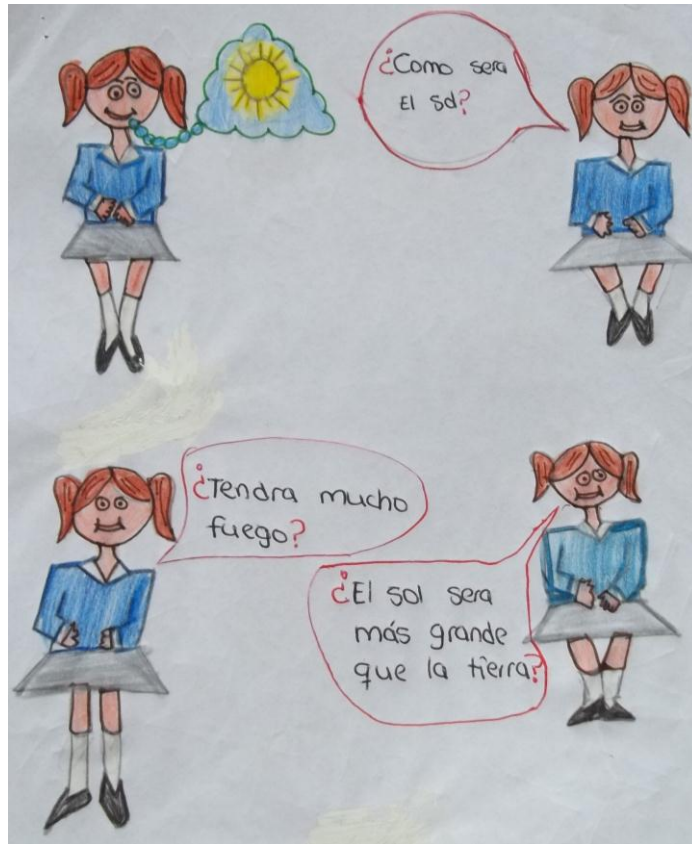 ¿Como sera
El sol?
¿Tendra mucho
fuego?
¿El sol sera
más grande
que la tierra?